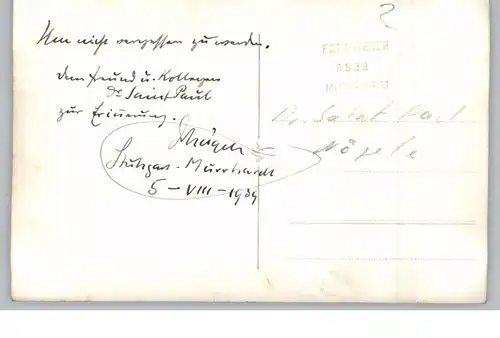 Um nicht vergessen zu werden.
dem Freund u. Kollegen
Dr Saint Paul
zur Erinnerung.
Nägele
Stuttgart-Murrhardt
5-VIII-1939
2
Dr. Saint Paul
Nägele